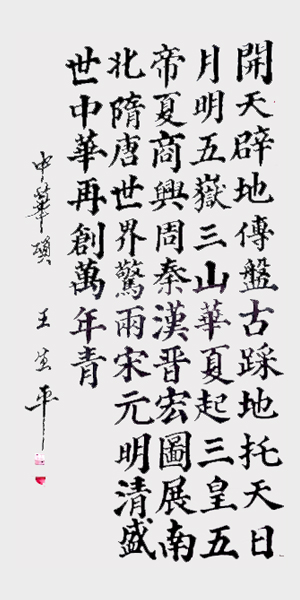 開天辟地傳盤古踩地托天日
月明五嶽三山華夏起三皇五
帝夏商興周秦漢晋宏圖展南
北隋唐世界驚兩宋元明清盛
世中華再創萬年青
中華頌 王宣平